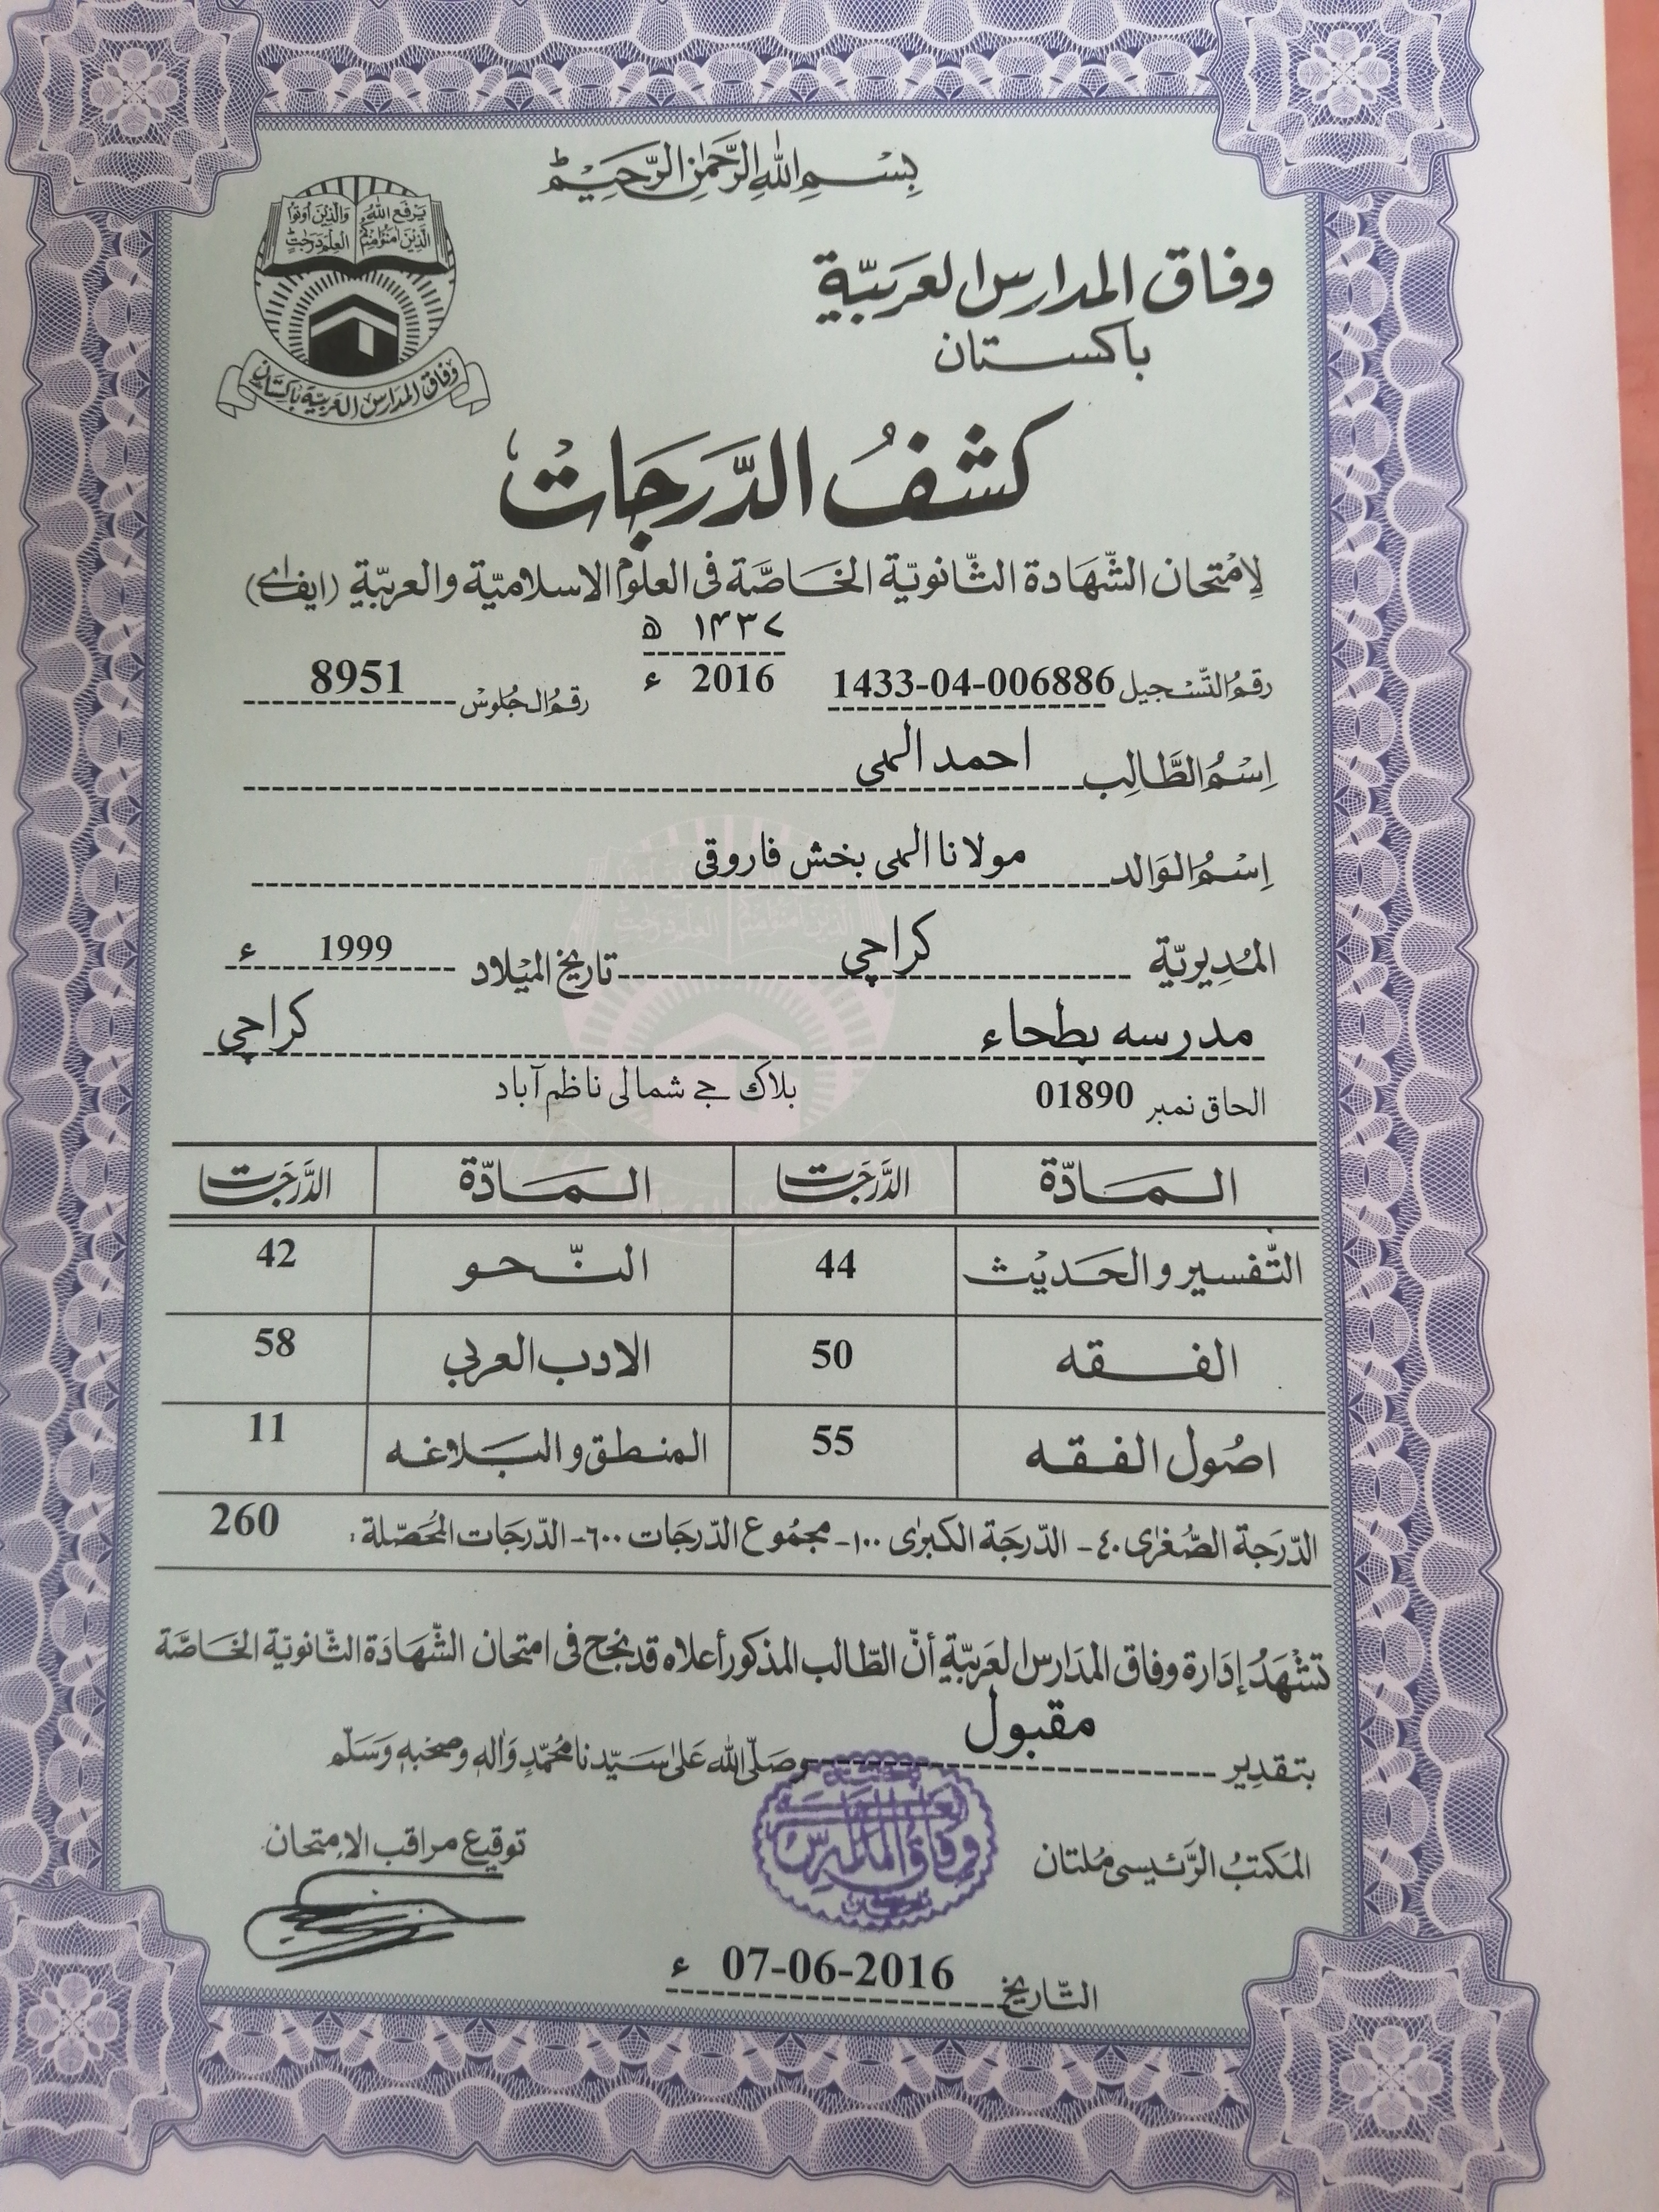 بِسْمِ اللهِ الرَّحْمٰنِ الرَّحِيْمِ
يَرْفَعِ اللهُ الَّذِيْنَ اٰمَنُوْا مِنْكُمْ
وَالَّذِيْنَ اُوْتُوا الْعِلْمَ دَرَجٰتٍ
وفاق المدارس العربية باكستان
وفاق المدارس العربيّة
باكستان
كشفُ الدَّرَجَات
لِامْتحان الشّهَادة الثّانويّة الخَاصَّة فى العلوم الاسلاميّة والعربيّة (ايف اے)
۱۴۳۷ ھ
رقمُ التّسْجيل 1433-04-006886 2016 ء رقمُ الجُلوسْ 8951
اِسْمُ الطَّالِب احمد الٰہی
اِسْمُ الوَالد مولانا الٰہی بخش فاروقی
المُديريّة كراچی تاريخ الميْلاد 1999 ء
مدرسہ بطحاء كراچی
الحاق نمبر 01890 بلاک جے شمالی ناظم آباد
المَادّة الدَّرَجَات المَادّة الدَّرَجَات
التّفسير والحَديْث 44 النّحو 42
الفقه 50 الادب العربي 58
اصُول الفقه 55 المنطق و البَلاغه 11
الدّرَجة الصُّغرٰى ٤٠- الدّرجَة الكبرٰى ١٠٠- مجمُوع الدّرجات ٦٠٠- الدّرجات المُحَصّلة: 260
تشْهَدُ إدَارة وفاق المدَارس العَربيّة أنّ الطّالب المذكور أعلاه قد نجح فى امتحان الشّهَادَة الثّانويّة الخَاصَّة
بتقدِير مقبول وصَلّى الله عَلى سَيّدنا مُحَمّدٍ وَاٰله وصَحْبهٖ وَسَلّم
المكتبُ الرّئيسى مُلتان
وفاق المدارس
توقيع مراقب الامتحان
التّاريخ 07-06-2016 ء